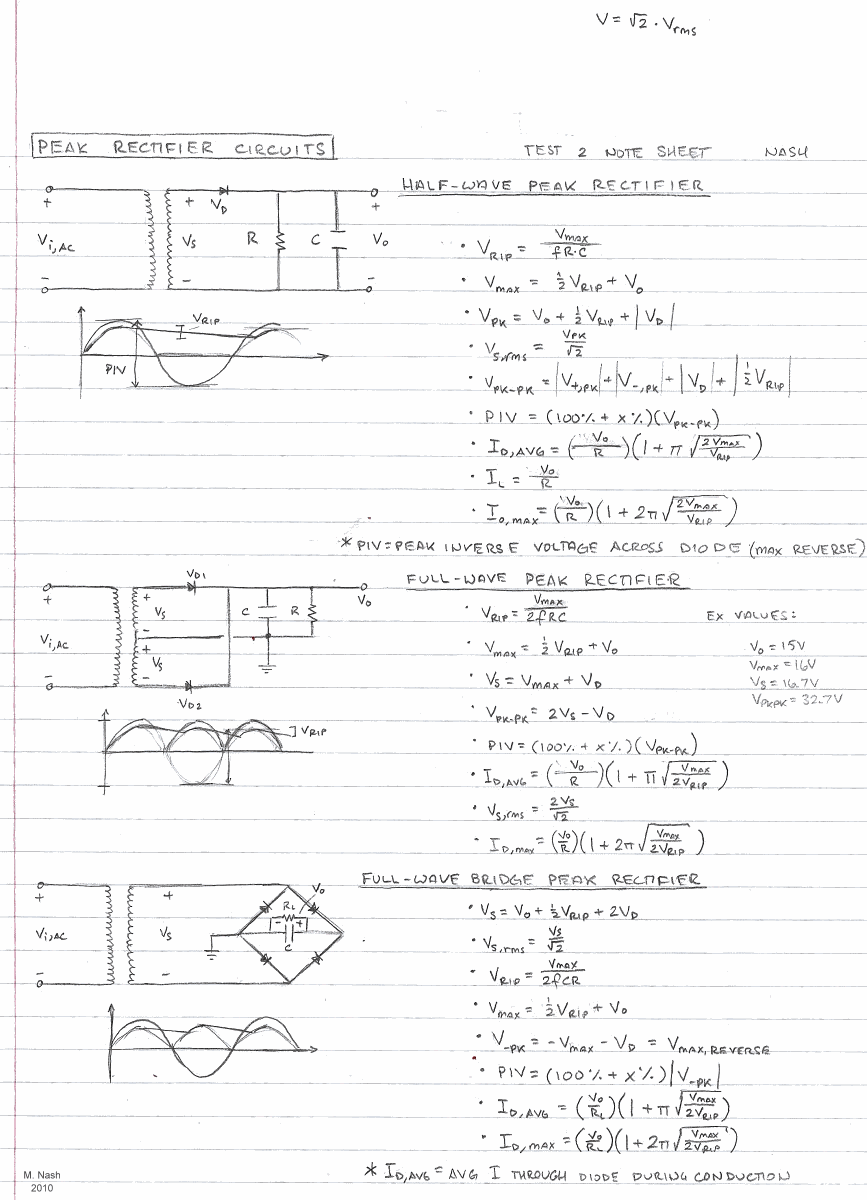 V = √2 · Vrms
PEAK RECTIFIER CIRCUITS
TEST 2 NOTE SHEET NASH
HALF-WAVE PEAK RECTIFIER
+ + VD +
Vi,AC VS R C Vo
− − −
· VRIP = Vmax / fR·C
· Vmax = ½ VRIP + Vo
· VPK = Vo + ½ VRIP + |VD|
· VS,rms = VPK / √2
· VPK-PK = |V+,PK| + |V-,PK| + |VD| + |½ VRIP|
· PIV = (100% + X%)(VPK-PK)
· ID,AVG = (Vo / R)(1 + π √(2Vmax / VRIP))
· IL = Vo / R
· ID,MAX = (Vo / R)(1 + 2π √(2Vmax / VRIP))
VRIP
PIV
* PIV = PEAK INVERSE VOLTAGE ACROSS DIODE (MAX REVERSE)
FULL-WAVE PEAK RECTIFIER
VD1
+ + +
VS C R Vo
Vi,AC −
+
VS
− −
VD2
· VRIP = Vmax / 2fRC
· Vmax = ½ VRIP + Vo
· VS = Vmax + VD
· VPK-PK = 2VS − VD
· PIV = (100% + X%)(VPK-PK)
· ID,AVG = (Vo / R)(1 + π √(Vmax / 2VRIP))
· VS,rms = 2VS / √2
· ID,max = (Vo / R)(1 + 2π √(Vmax / 2VRIP))
EX VALUES:
Vo = 15V
Vmax = 16V
VS = 16.7V
VPKPK = 32.7V
VRIP
FULL-WAVE BRIDGE PEAK RECTIFIER
+ + Vo
RL
− +
Vi,AC VS C
− −
· VS = Vo + ½ VRIP + 2VD
· VS,rms = VS / √2
· VRIP = Vmax / 2fCR
· Vmax = ½ VRIP + Vo
· V-PK = −Vmax − VD = Vmax, REVERSE
· PIV = (100% + X%)|V-PK|
· ID,AVG = (Vo / RL)(1 + π √(Vmax / 2VRIP))
· ID,MAX = (Vo / RL)(1 + 2π √(Vmax / 2VRIP))
* ID,AVG = AVG I THROUGH DIODE DURING CONDUCTION
M. Nash
2010